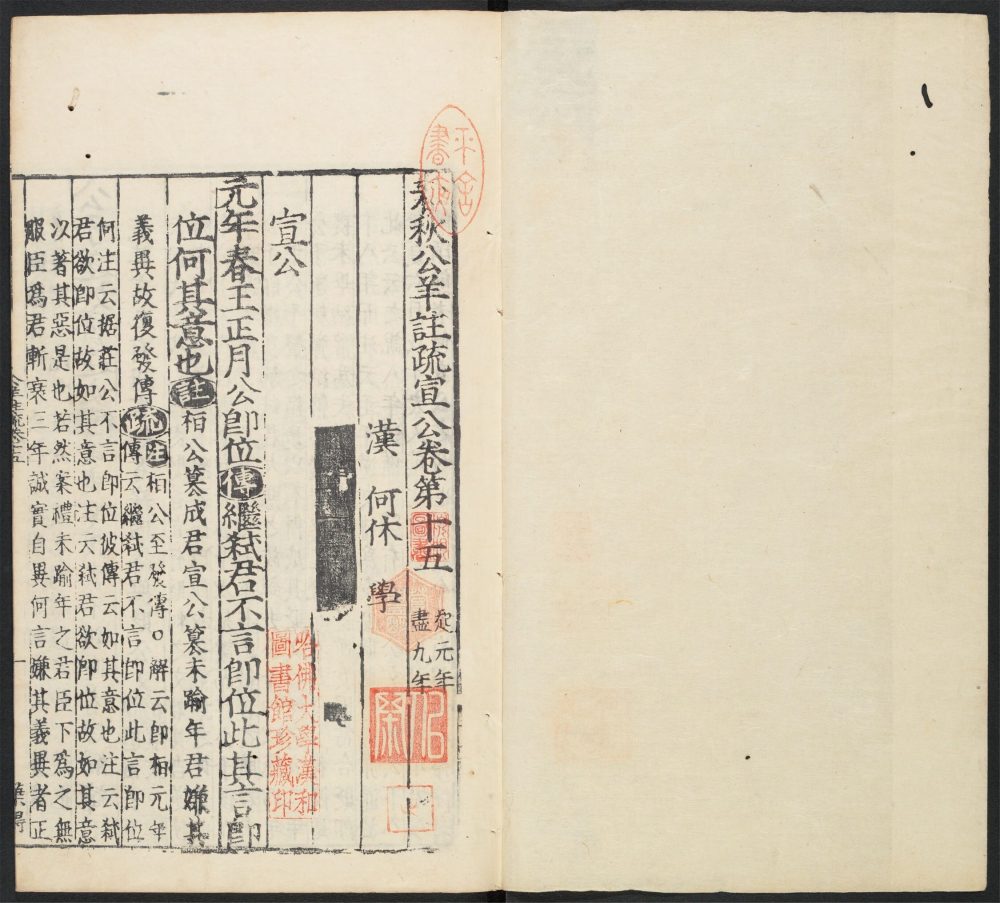 春秋公羊註疏宣公卷第十五 起元年 盡九年
漢 何休 學
宣公
元年春王正月公即位傳繼弒君不言即位此其言即
位何其意也註桓公篡成君宣公篡未踰年君嫌其
義異故復發傳疏注桓公至發傳○解云即桓元年
傳云繼弒君不言即位此言即位
何注云据莊公不言即位彼傳云如其意也注云弒
君欲即位故如其意也注云弒君欲即位故如其意
以著其惡是也若然案禮未踰年之君臣下爲之無
服臣爲君斬衰三年誠實自異何言嫌其義異者正
平
書
哈佛大學漢和
圖書館珍藏印